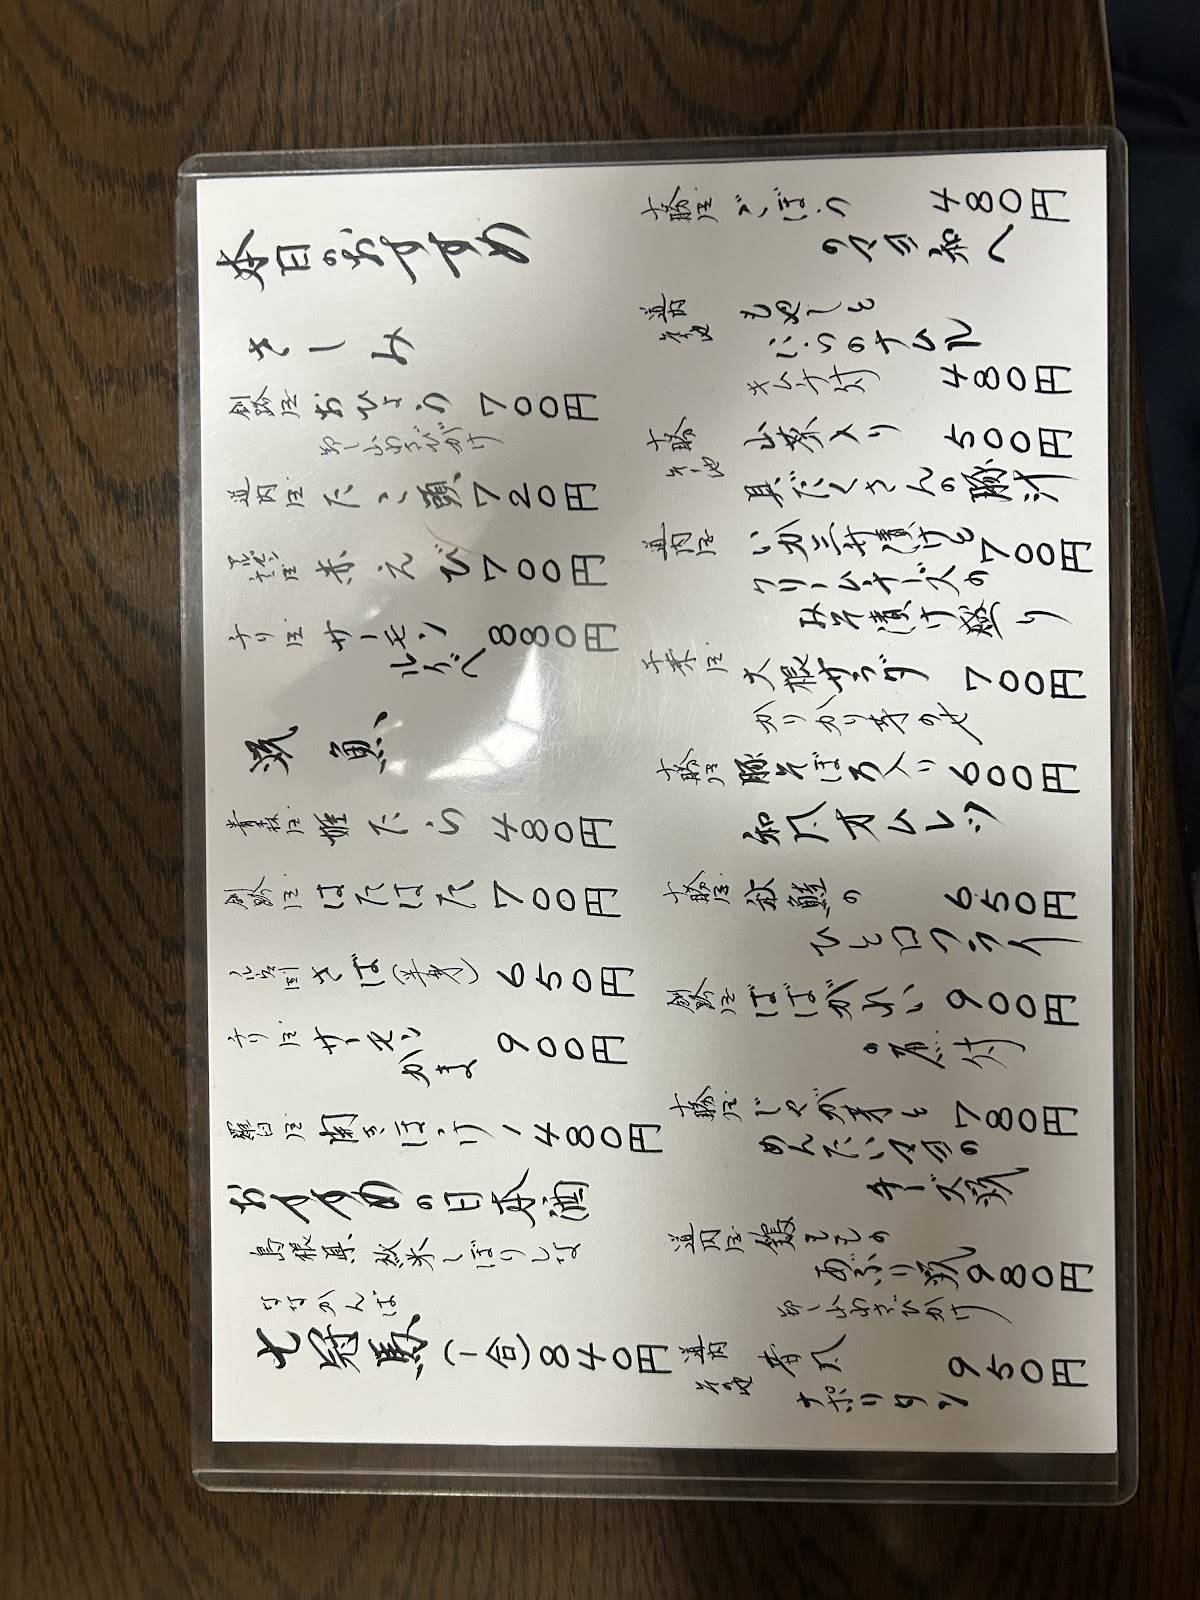 本日のおすすめ
さしみ
釧路産 おひょう 700円
卸し山わさびがけ
道内産 たこ頭 720円
アルゼンチン産 赤えび 700円
チリ産 サーモン 880円
ルイベ
焼魚
青森産 姫たら 480円
釧路産 はたはた 700円
さば(半身) 650円
チリ産 サーモン 900円
かま
羅臼産 開きほっけ 1480円
おすすめの日本酒
島根県 純米しぼりしな
ななかんば
七冠馬(一合) 840円
十勝産 ごぼう 480円
のゴマ和へ
道内 その他 もやしと
にらのナムル
キムチ付 480円
十勝 その他 山菜入り 500円
具だくさんの豚汁
道内産 いか三升漬けと 700円
クリームチーズの
みそ漬け盛り
千葉産 大根サラダ 700円
カリカリ芋のせ
十勝産 豚そぼろ入り 600円
和風オムレツ
十勝産 秋鮭の 650円
ひと口フライ
釧路産 ばばがれい 900円
の煮付
十勝産 じゃが芋と 780円
めんたいマヨの
チーズ焼
道内産 鴨ももの
あぶり焼 980円
卸し山わさびかけ
道内 その他 昔風 950円
ナポリタン